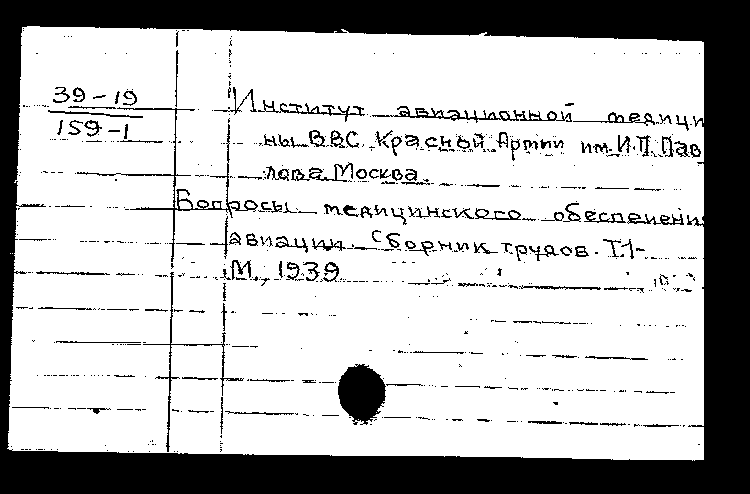 39-19
159-1
Институт авиационной медици
ны ВВС Красной Армии им. И.П. Пав
лова. Москва.
Вопросы медицинского обеспечения
авиации. Сборник трудов. Т.1-
М., 1939